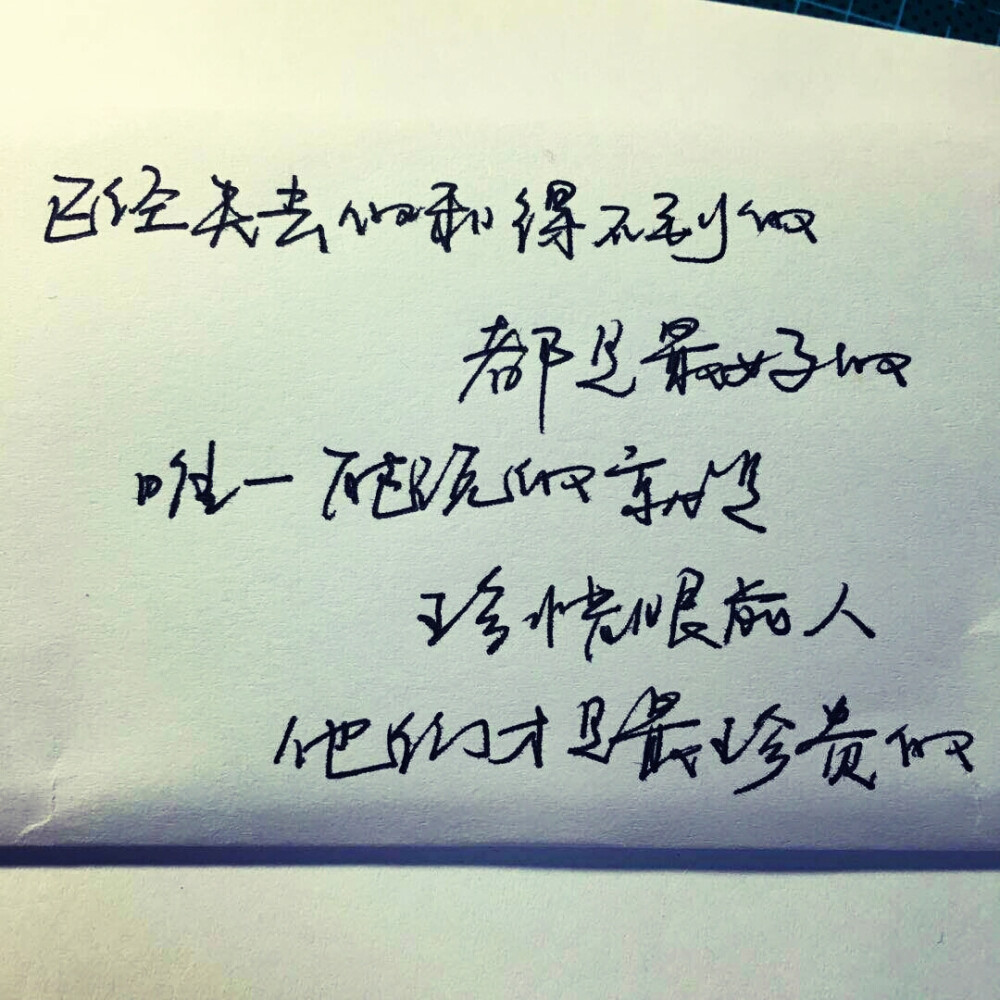 已经失去的和得不到的
都是最好的
唯一能现的就是
珍惜眼前人
他们才是最珍贵的